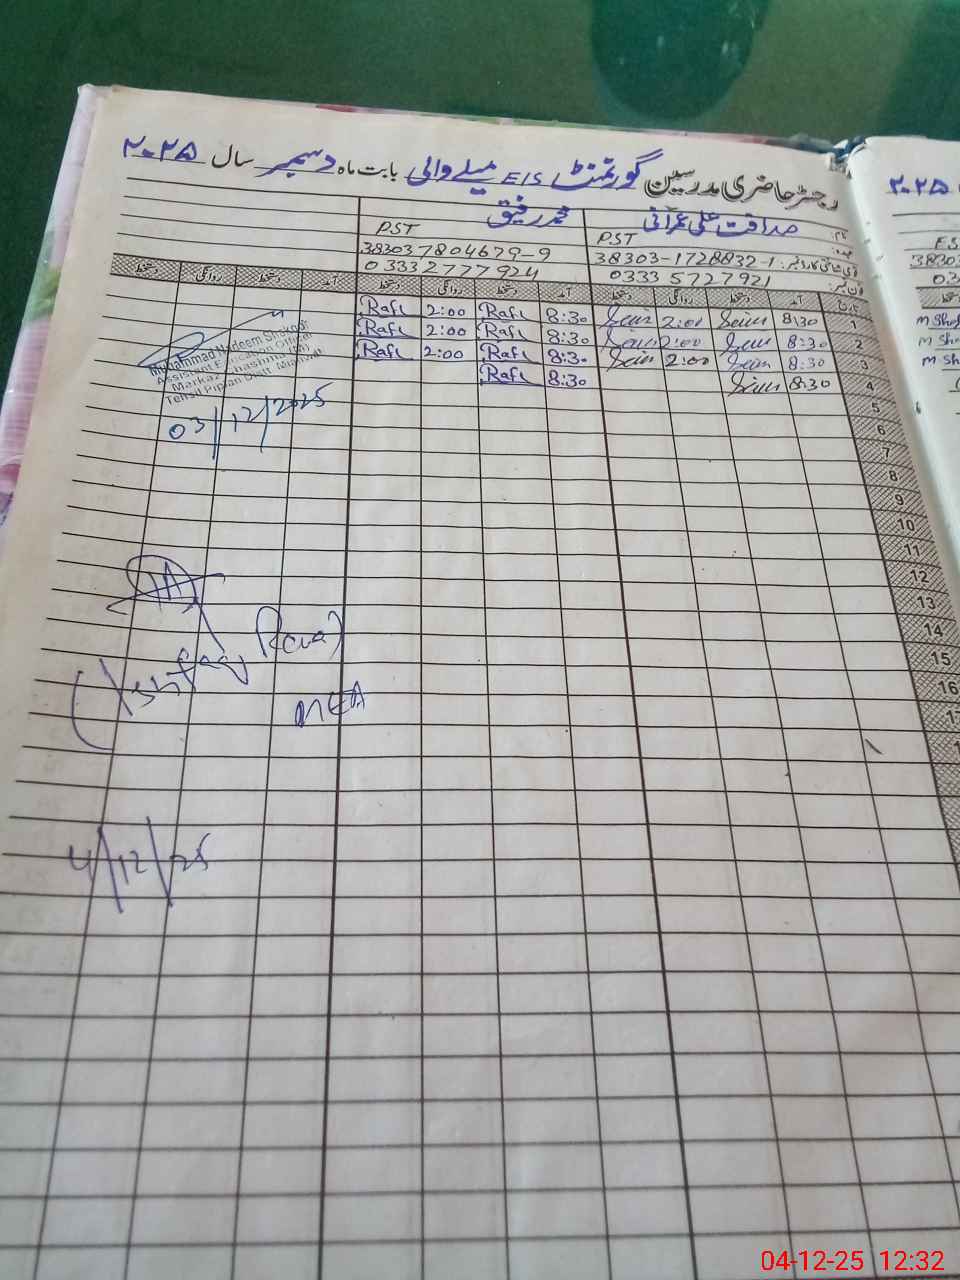 رجسٹر حاضری مدرسین گورنمنٹ E/S میلے والی بابت ماہ دسمبر سال ۲۰۲۵
صداقت علی عمرانی محمد رفیق
PST PST
38303-1728832-1 383037804679-9
0333 5727921 0333 2777924
تاریخ آمد دستخط روانگی دستخط آمد دستخط روانگی دستخط آمد دستخط روانگی دستخط
1 8:30 2:00 8:30 Rafi 2:00 Rafi
2 8:30 2:00 8:30 Rafi 2:00 Rafi
3 8:30 2:00 8:30 Rafi 2:00 Rafi
4 8:30 8:30 Rafi
5
6
7
8
9
10
11
12
13
14
15
16
Muhammad Nadeem Shahzad
Assistant Education Officer
Tehsil Piplan Distt. Mianwali
03/12/2025
(Ishfaq Rcua)
MEA
4/12/25
۲۰۲۵
38303
M Shaf
M Sha
M Sh
04-12-25 12:32